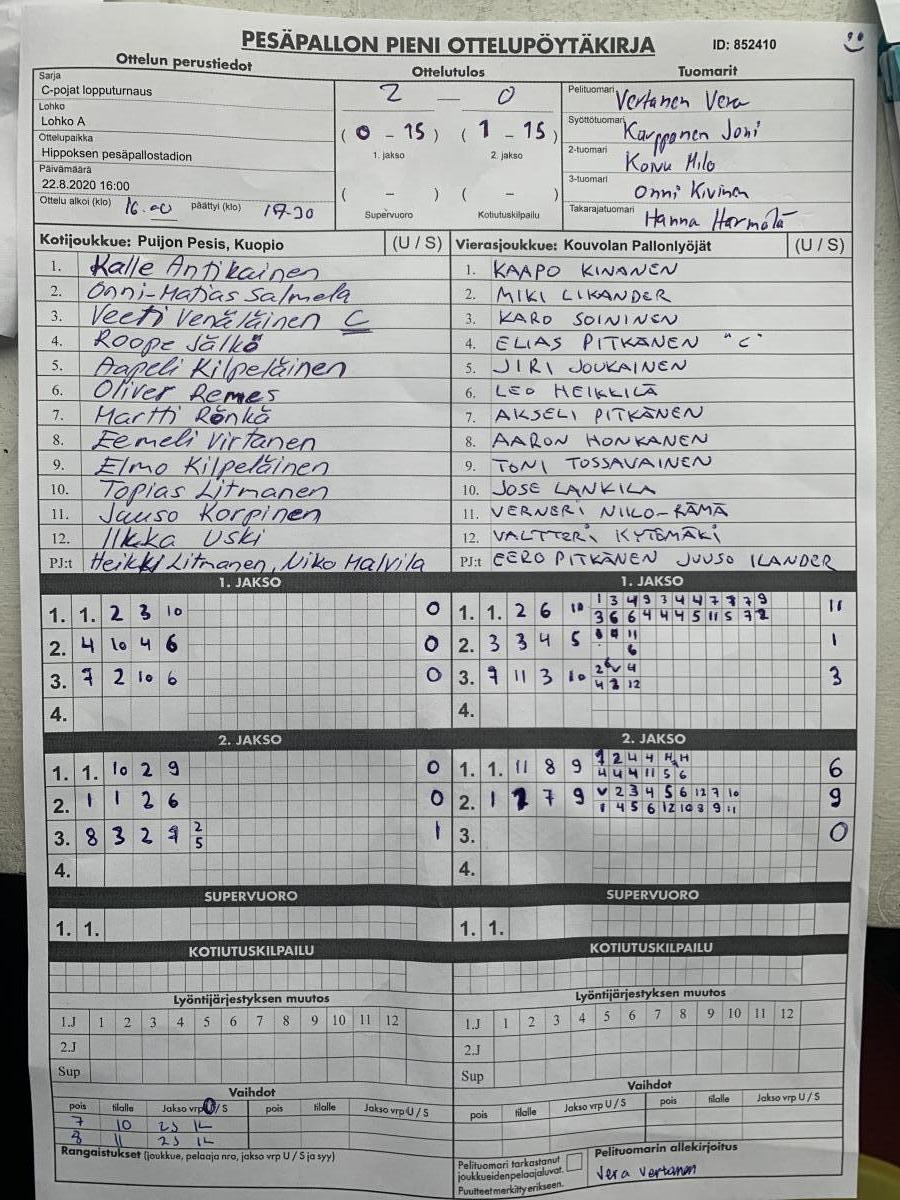 PESÄPALLON PIENI OTTELUPÖYTÄKIRJA
ID: 852410
Ottelun perustiedot
Sarja
C-pojat lopputurnaus
Lohko
Lohko A
Ottelupaikka
Hippoksen pesäpallostadion
Päivämäärä
22.8.2020 16:00
Ottelu alkoi (klo) 16.00 päättyi (klo) 17.30
Ottelutulos
2 — 0
(0 - 15) (1 - 15)
1. jakso 2. jakso
( - ) ( - )
Supervuoro Kotiutuskilpailu
Tuomarit
Pelituomari Vertanen Vera
Syöttötuomari Karppanen Joni
2-tuomari Koivu Milo
3-tuomari Onni Kivinen
Takarajatuomari Hanna Harmola
Kotijoukkue: Puijon Pesis, Kuopio (U / S)
1. Kalle Antikainen
2. Onni-Matias Salmela
3. Veeti Venäläinen C
4. Roope Jälkö
5. Aapeli Kilpeläinen
6. Oliver Remes
7. Martti Rönkä
8. Eemeli Virtanen
9. Elmo Kilpeläinen
10. Topias Litmanen
11. Juuso Korpinen
12. Ilkka Uski
PJ:t Heikki Litmanen, Niko Halvila
Vierasjoukkue: Kouvolan Pallonlyöjät (U / S)
1. KAAPO KINANEN
2. MIKI LIKANDER
3. KARO SOININEN
4. ELIAS PITKÄNEN "C"
5. JIRI JOUKAINEN
6. LEO HEIKKILÄ
7. AKSELI PITKÄNEN
8. AARON HONKANEN
9. TONI TOSSAVAINEN
10. JOSE LANKILA
11. VERNERI NIILO-RÄMÄ
12. VALTTERI KYTÖMÄKI
PJ:t EERO PITKÄNEN JUUSO ILANDER
1. JAKSO
1. 1. 2 3 10 0
2. 4 10 4 6 0
3. 7 2 10 6 0
4.
1. JAKSO
1 3 4 9 3 4 4 7 7 7 9
1. 1. 2 6 10 11
3 6 6 4 4 4 5 11 5 7 2
2. 3 3 4 5 11 1
6
3. 9 11 3 10 3
4 3 12
4.
2. JAKSO
1. 1. 10 2 9 0
2. 1 1 2 6 0
3. 8 3 2 7 2 1
5
4.
2. JAKSO
1 2 4 4 H H
1. 1. 11 8 9 6
4 4 4 11 5 6
V 2 3 4 5 6 12 7 10
2. 1 2 7 9 9
1 4 5 6 12 10 8 9 11
3. 0
4.
SUPERVUORO
1. 1.
SUPERVUORO
1. 1.
KOTIUTUSKILPAILU
KOTIUTUSKILPAILU
Lyöntijärjestyksen muutos
1.J 1 2 3 4 5 6 7 8 9 10 11 12
2.J
Sup
Lyöntijärjestyksen muutos
1.J 1 2 3 4 5 6 7 8 9 10 11 12
2.J
Sup
Vaihdot
pois tilalle Jakso vrp U / S pois tilalle Jakso vrp U / S
7 10 2J 1L
8 11 2J 1L
Vaihdot
pois tilalle Jakso vrp U / S pois tilalle Jakso vrp U / S
Rangaistukset (joukkue, pelaaja nro, jakso vrp U / S ja syy)
Pelituomari tarkastanut
joukkueidenpelaajaluvat.
Puutteet merkitty erikseen.
Pelituomarin allekirjoitus
Vera Vertanen